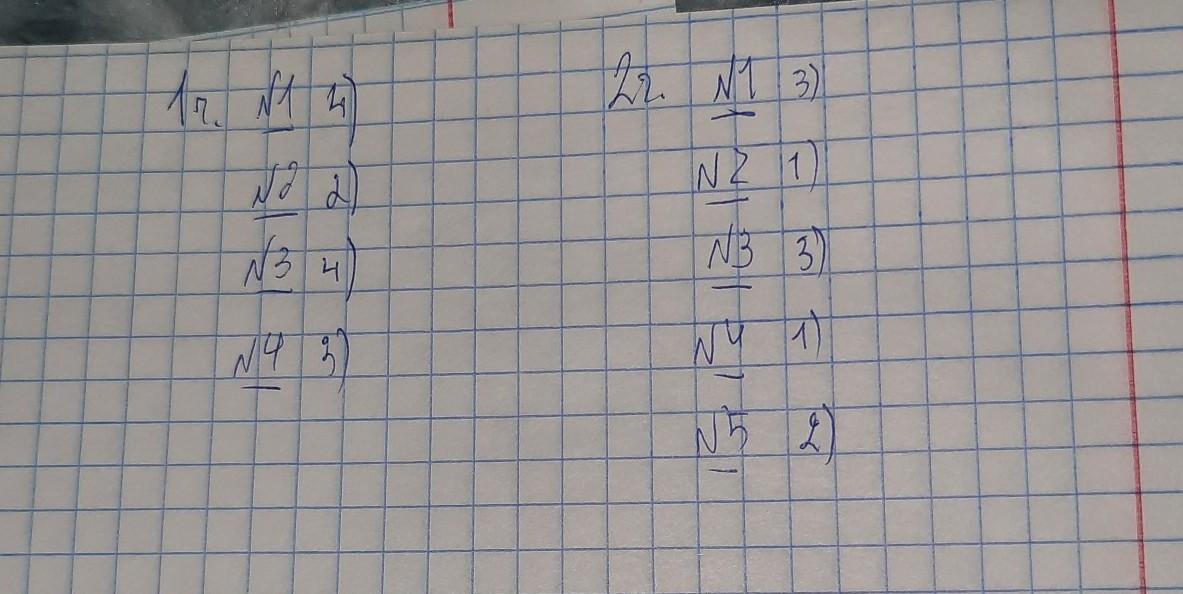 1ч. №1 4)
№2 2)
№3 4)
№4 3)
2ч. №1 3)
№2 1)
№3 3)
№4 1)
№5 2)